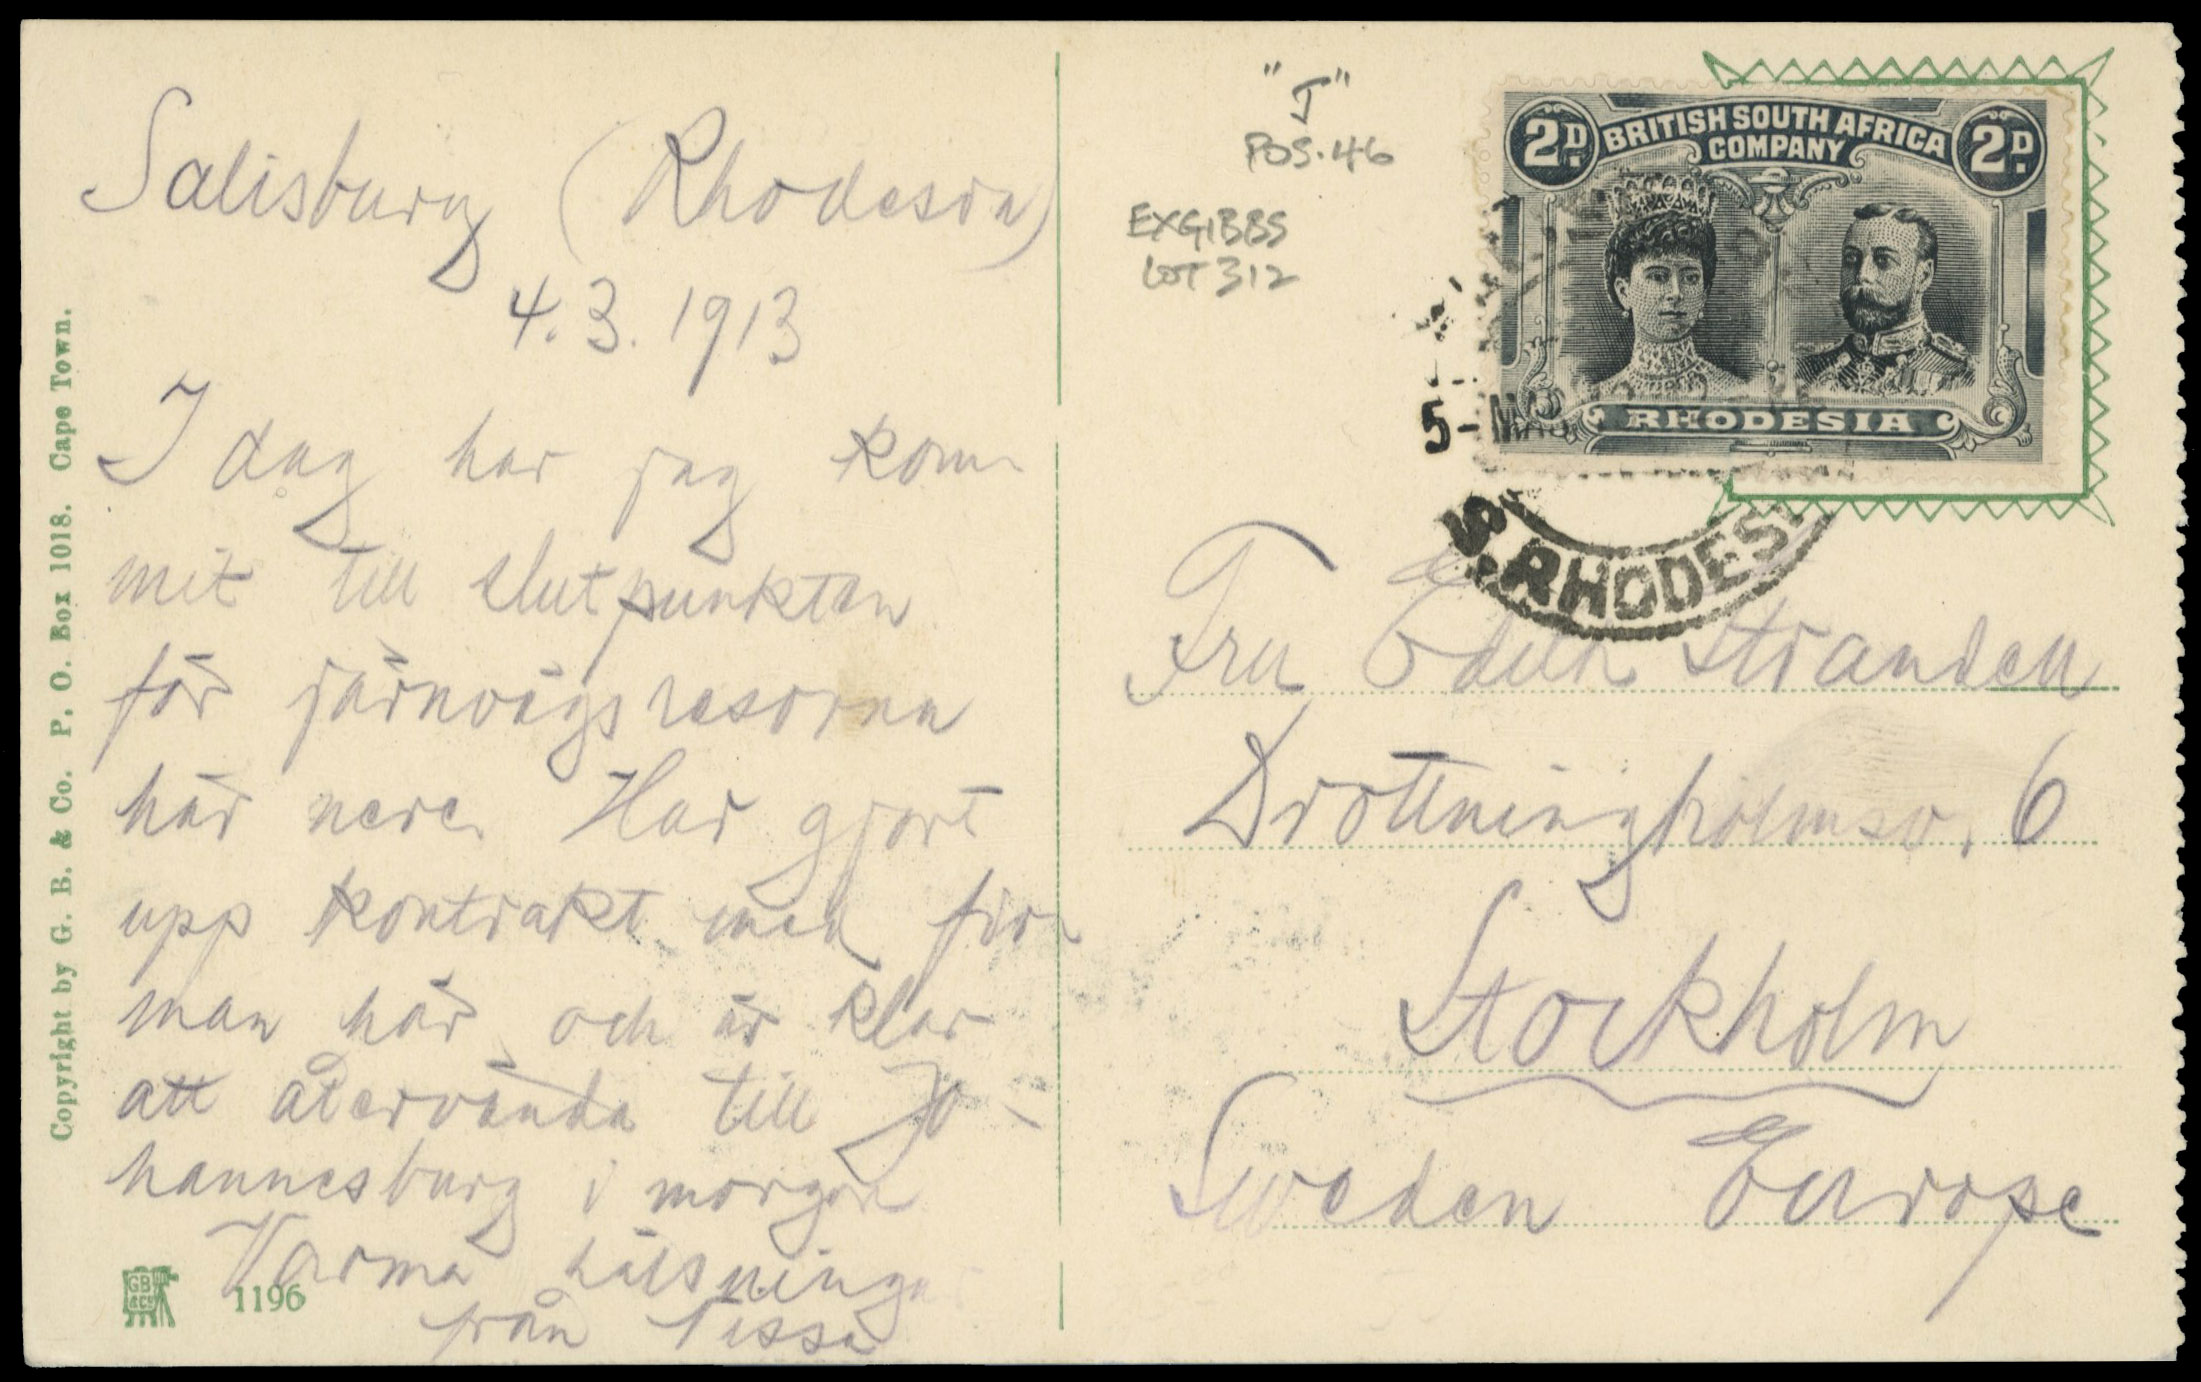 Salisbury (Rhodesia)
4.3.1913
I dag har jag kom-
mit till slutpunkten
för järnvägsresorna
här nere. Har gjort
upp kontrakt med fir-
man här och är klar
att återvända till Jo-
hannesburg i morgon
Varma hälsningar
från Nessa
Copyright by G. B. & Co. P. O. Box 1018. Cape Town.
GB
& Co
1196
"J"
POS.46
EXGIBBS
LOT 312
2D. BRITISH SOUTH AFRICA 2D.
COMPANY
RHODESIA
5-MAR
S. RHODES
Fru Edith Strandell
Drottningholmsv. 6
Stockholm
Sweden Europe